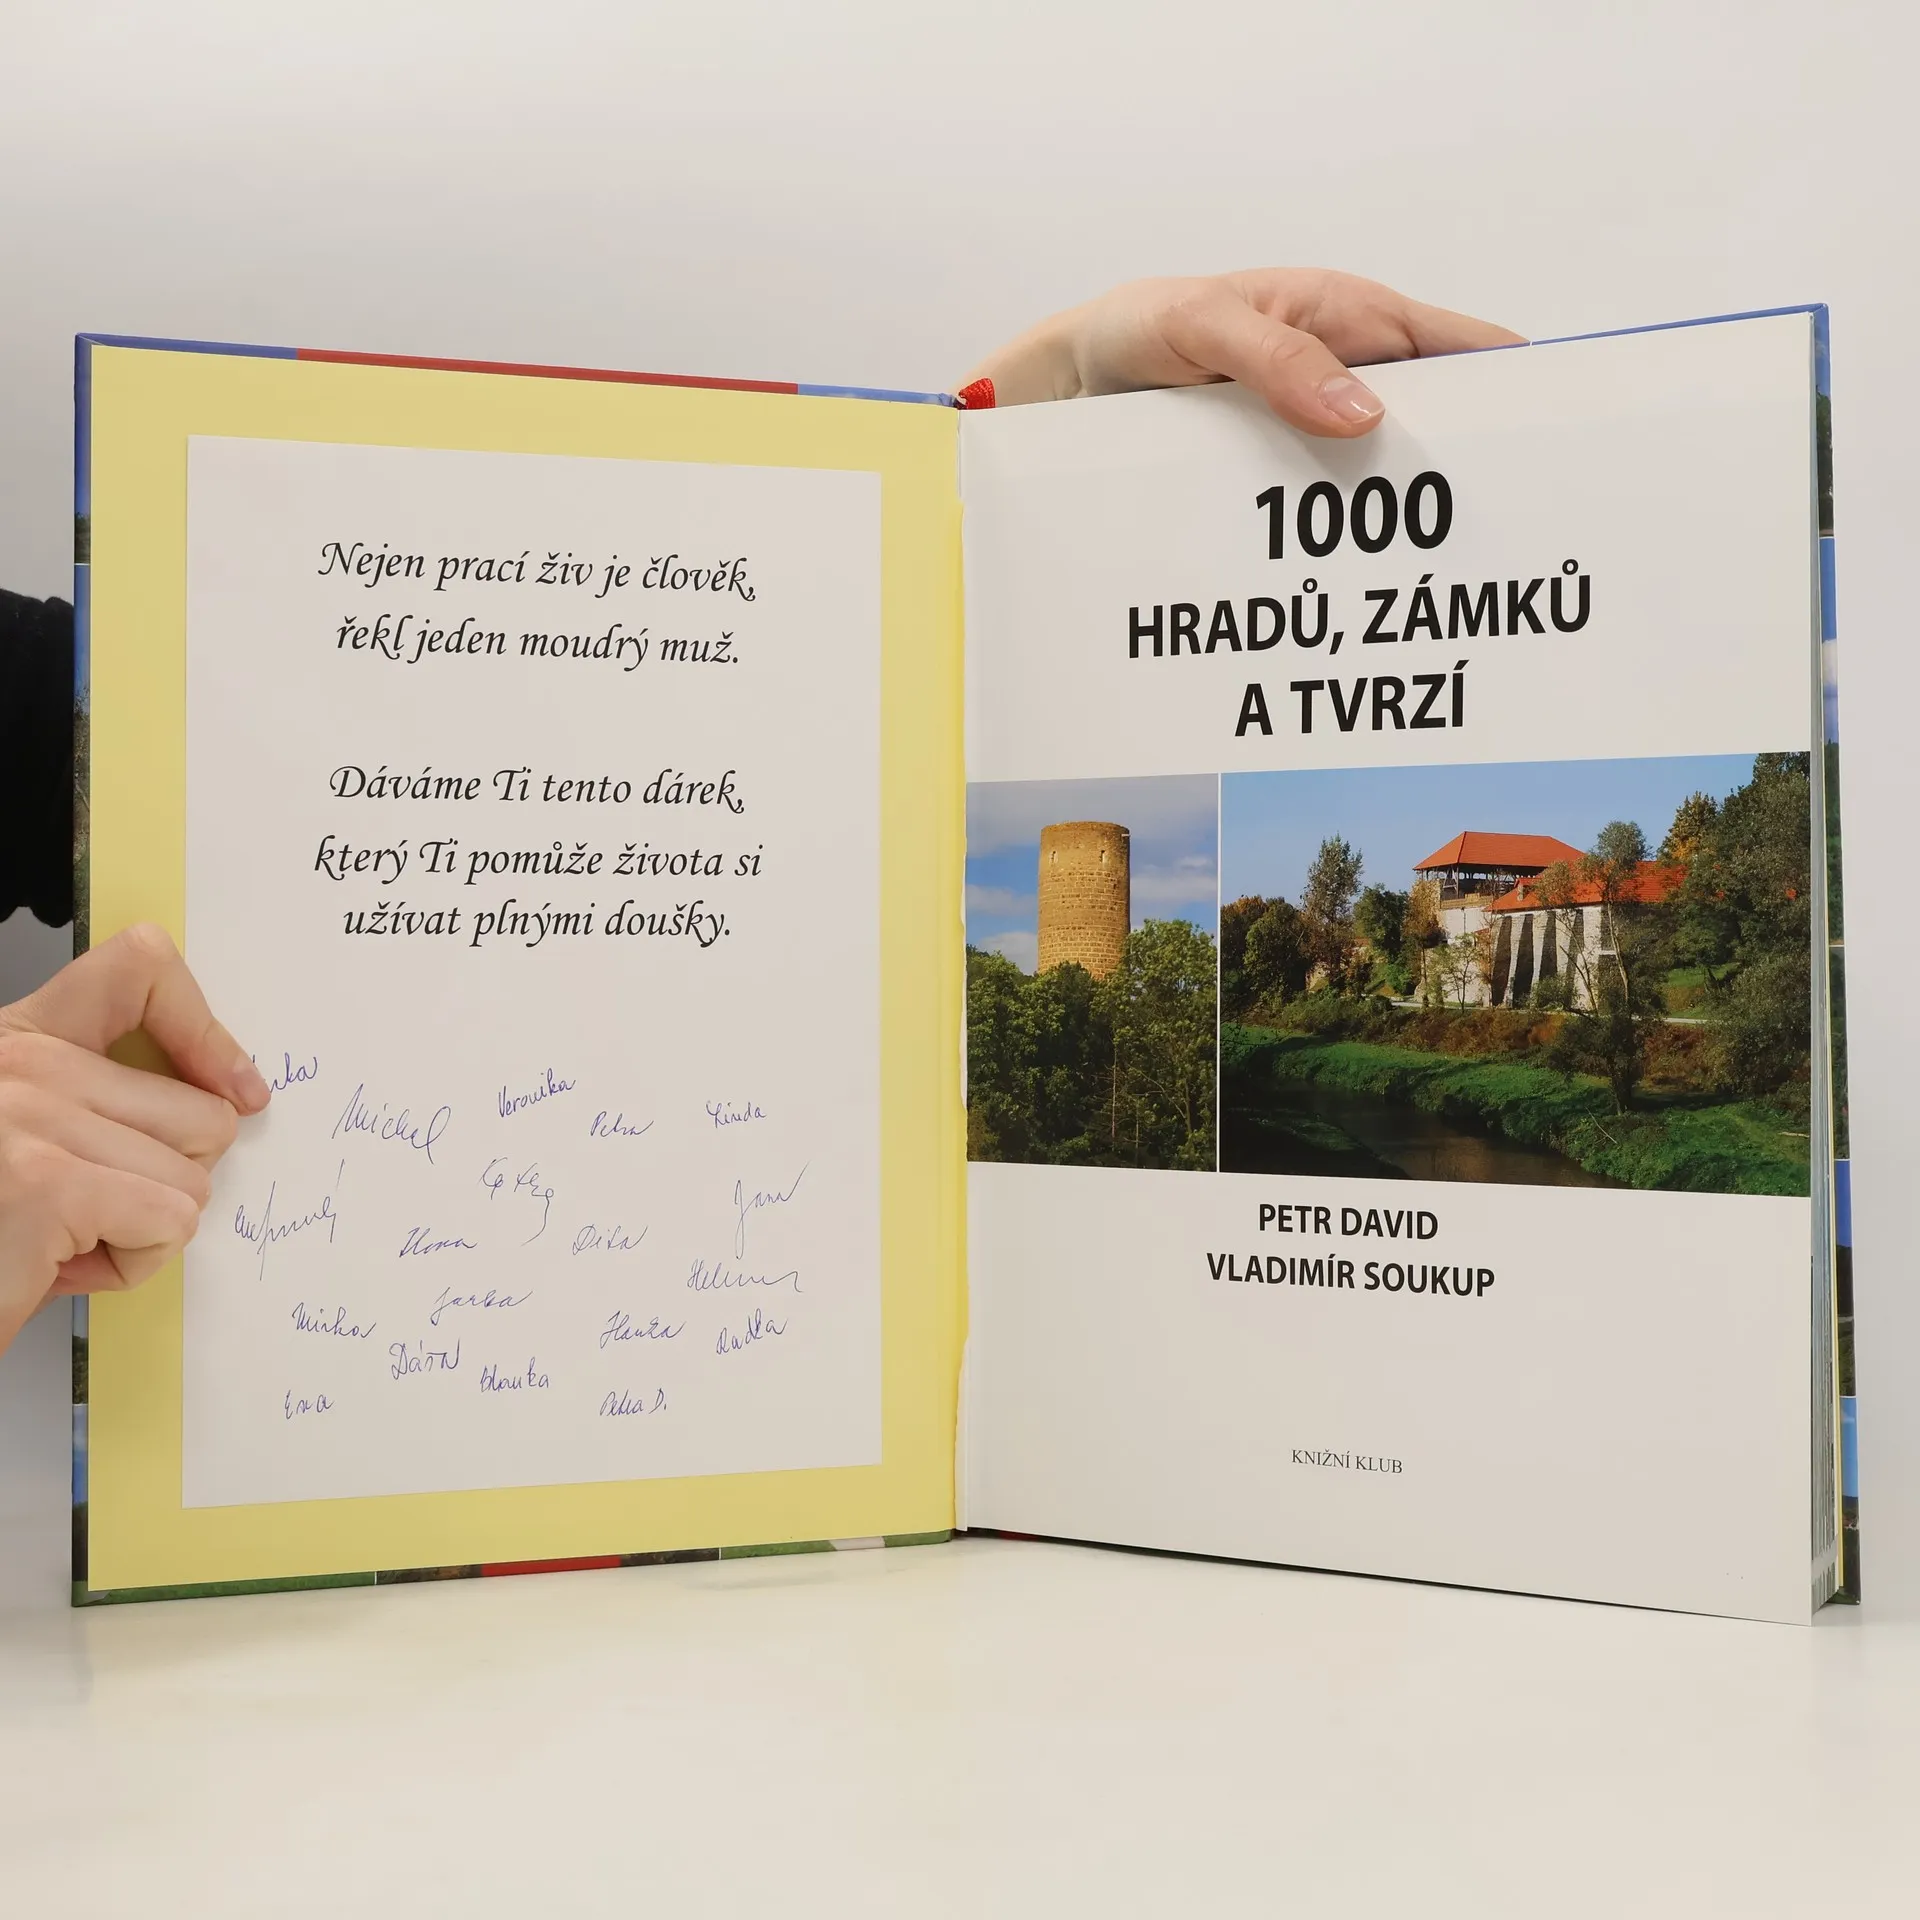 Nejen prací živ je člověk,
řekl jeden moudrý muž.
Dáváme Ti tento dárek,
který Ti pomůže života si
užívat plnými doušky.
Michal
Veronika
Petra
Linda
Jana
Ilona
Dita
Helena
Jarka
Mirka
Hanka
Radka
Dáša
Blanka
Eva
Petra D.
1000
HRADŮ, ZÁMKŮ
A TVRZÍ
PETR DAVID
VLADIMÍR SOUKUP
KNIŽNÍ KLUB